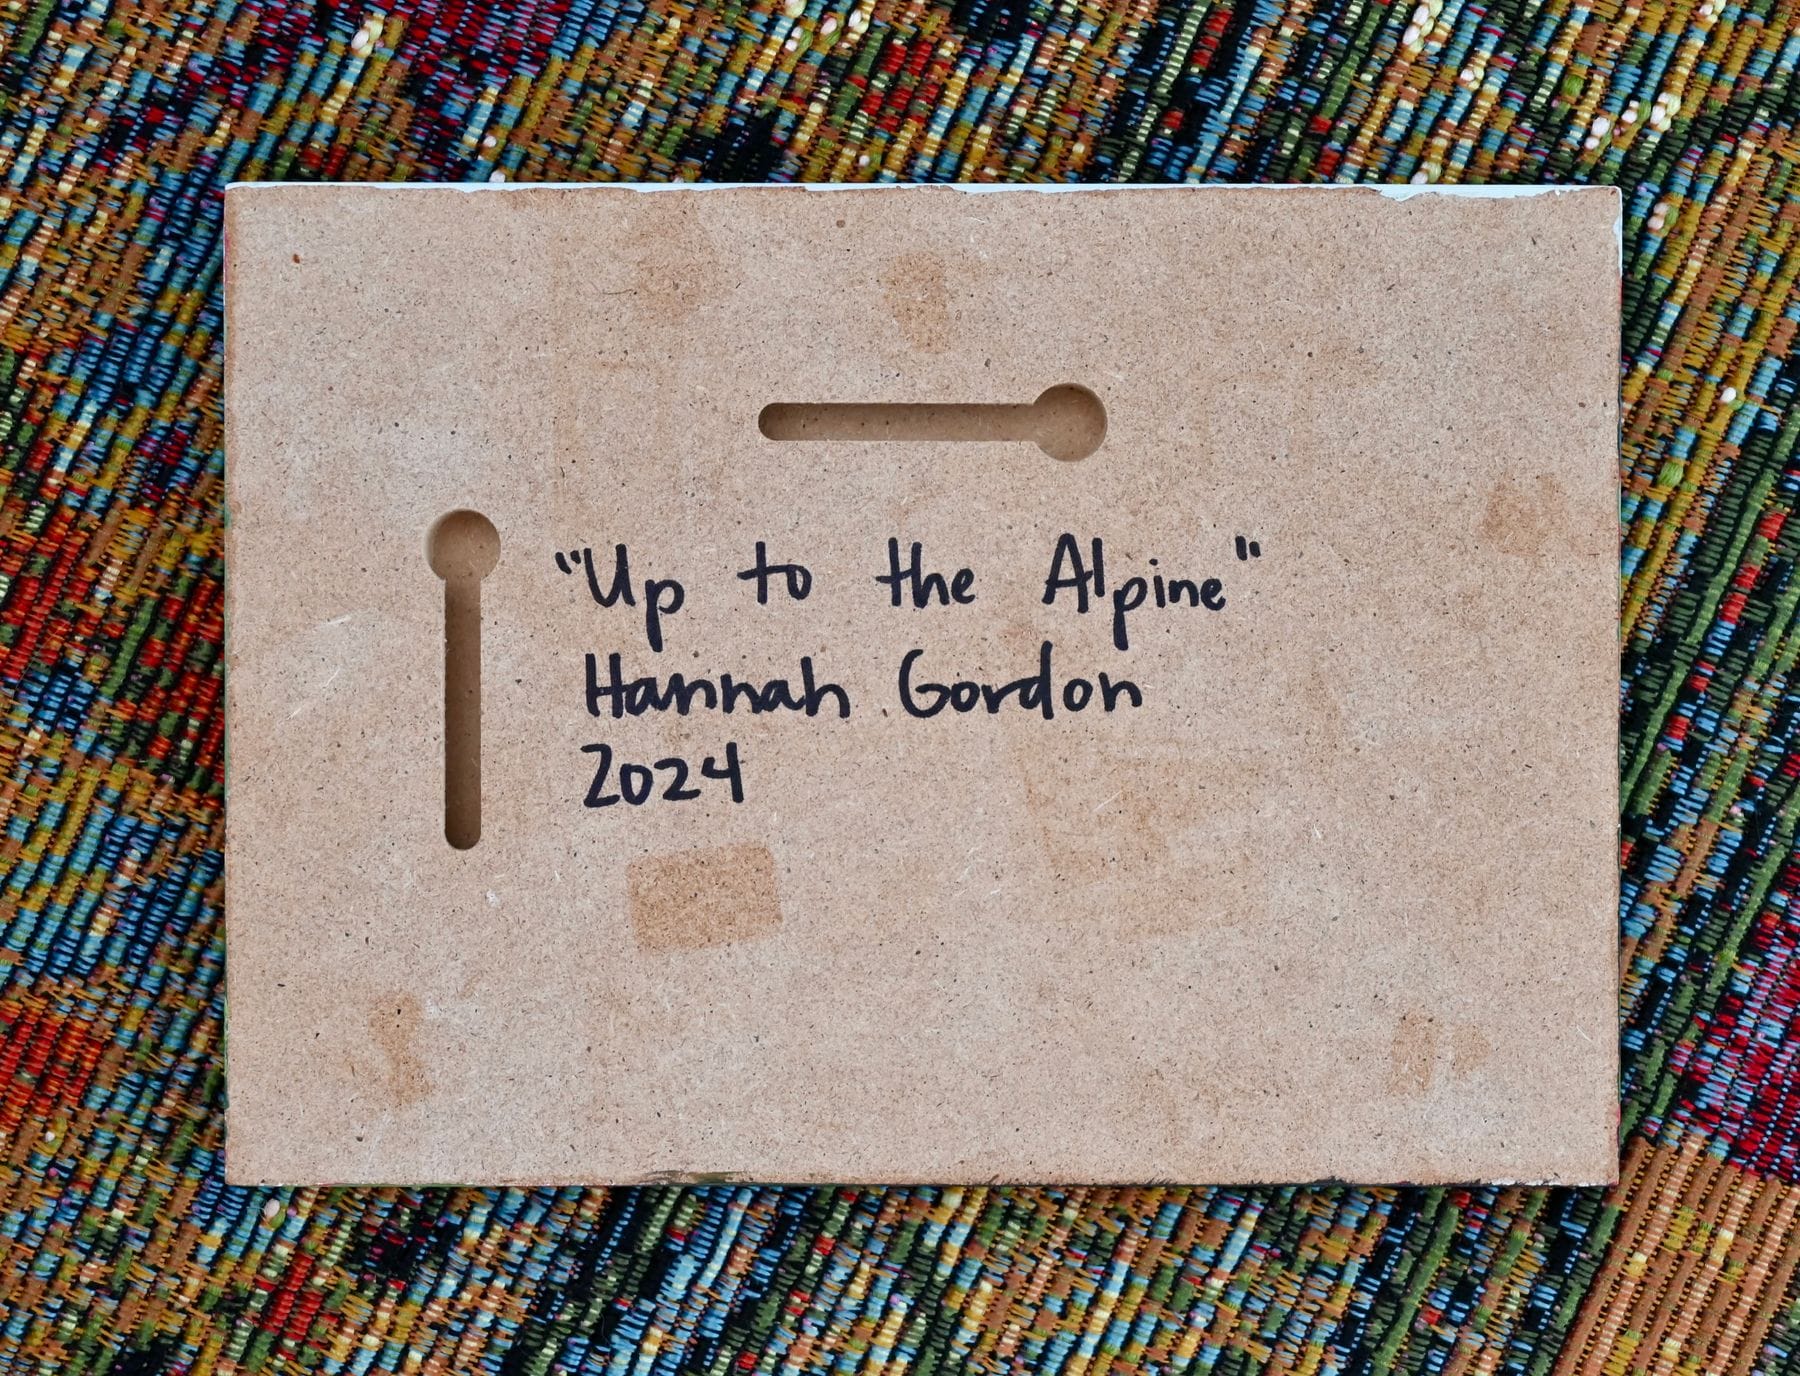 "Up to the Alpine"
Hannah Gordon
2024